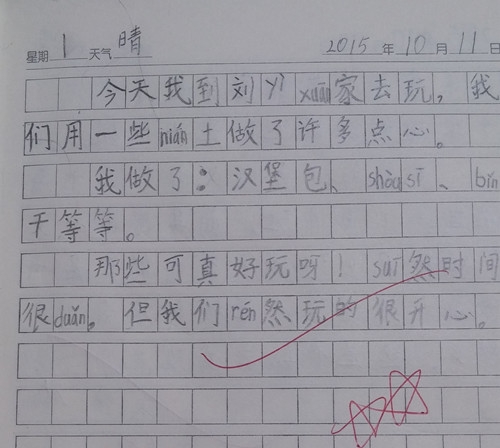 星期 1 天气 晴 2015 年 10 月 11 日
今天我到刘yǐ xuān家去玩，我
们用一些nián土做了许多点心。
我做了：汉堡包、shòu sī、bǐn
干等等。
那些可真好玩呀！suī然时间
很duǎn。但我们rén然玩的很开心。